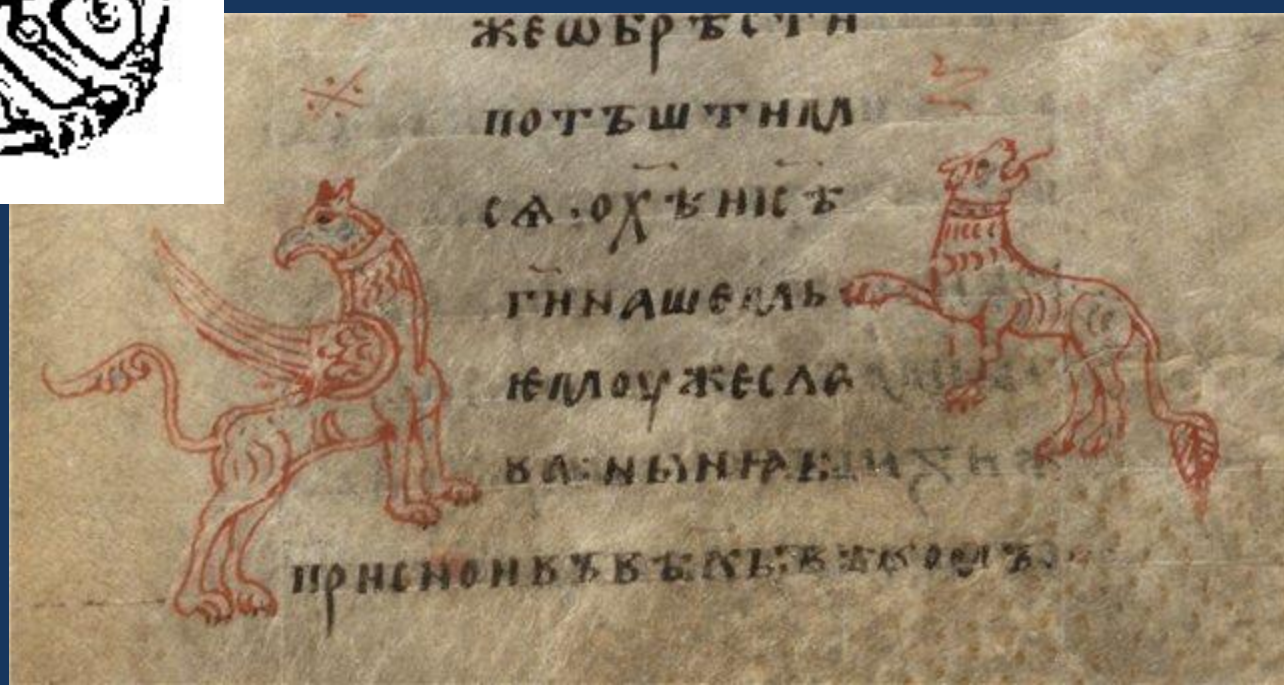 жеѡбрѣсти
потъштим
сѧ·охѣ҃ис҃ѣ
г҃инашемь
ѥмоужесла
присноивъвѣкъівѣкомъ·